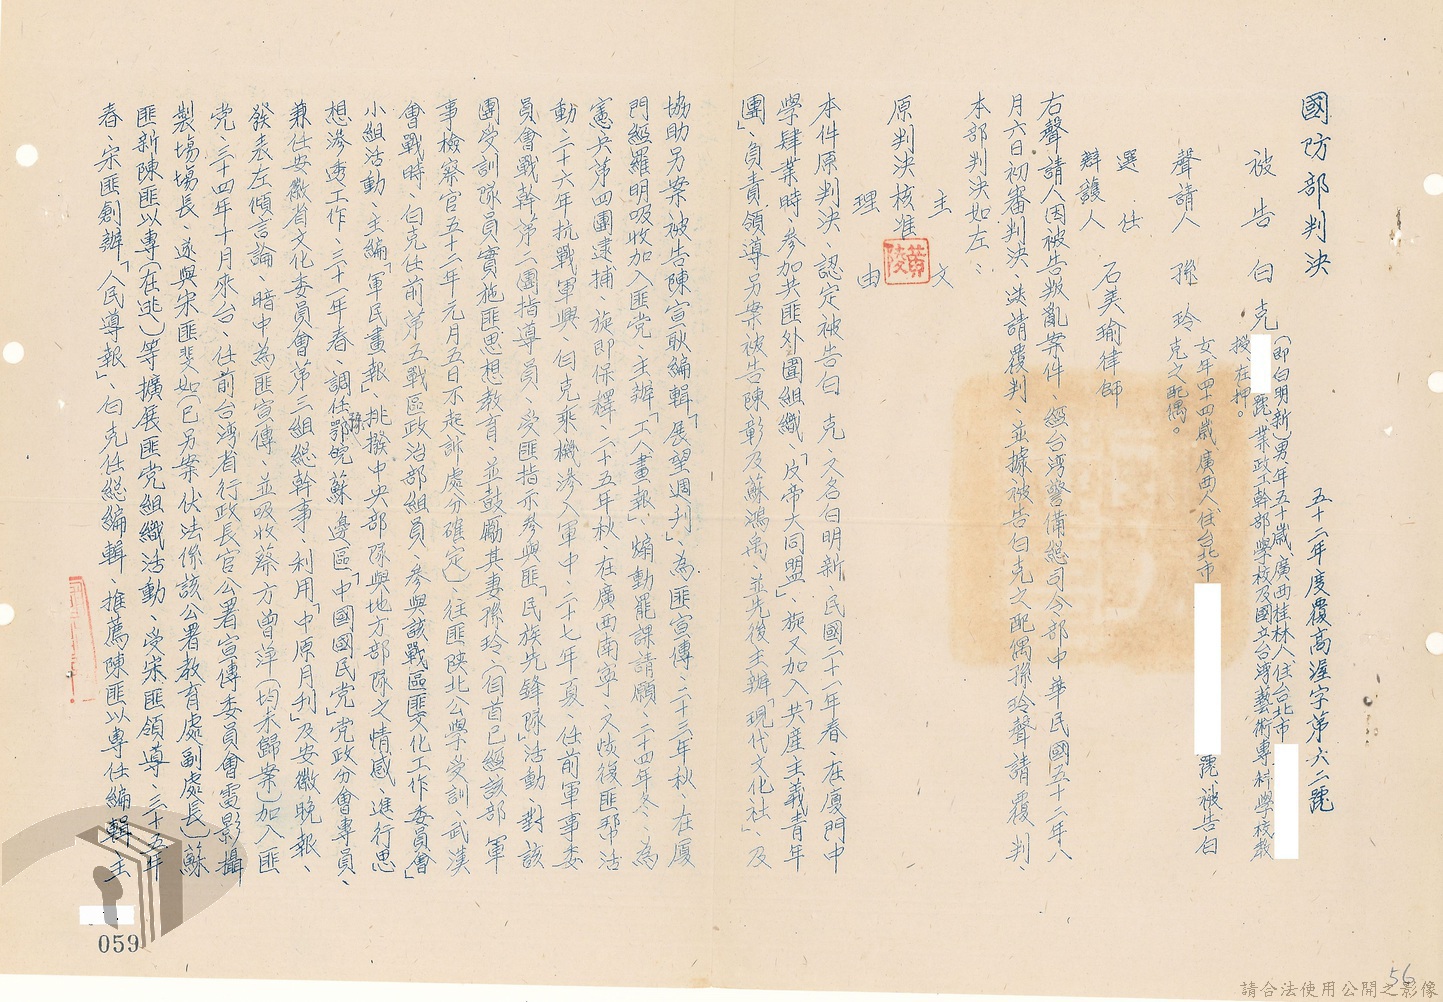 國防部判決
五十二年度覆高淮字第六二號
被告 白克(即白明新)男年五十歲廣西桂林人住台北市
號業政工幹部學校及國立台灣藝術專科學校教
授在押。
聲請人 孫玲 女年四十四歲廣西人住台北市 號被告白
克之配偶。
選任
辯護人 石美瑜律師
右聲請人因被告叛亂案件、經台湾警備總司令部中華民國五十二年八
月六日初審判決、送請覆判、並據被告白克之配偶孫玲聲請覆判、
本部判決如左:
主文
原判決核准
黃陵
理由
本件原判決、認定被告白克、又名白明新、民國二十一年春、在廈門中
學肄業時、參加共匪外圍組織、「反帝大同盟」、旋又加入「共產主義青年
團」、負責領導另案被告陳彰及蘇鴻禹、並先後主辦「現代文化社」、及
協助另案被告陳宣耿編輯「展望週刊」、為匪宣傳、二十三年秋、在廈
門經羅明吸收加入匪党、主辦「工人畫報」、煽動罷課請願、二十四年冬、為
憲兵第四團逮捕、旋即保釋、二十五年秋、在廣西南寧、又恢復匪幫活
動、二十六年抗戰軍興、白克乘機滲入軍中、二十七年夏、任前軍事委
員會戰幹第二團指導員、受匪指示參與匪「民族先鋒隊」活動、對該
團受訓隊員實施匪思想教育、並鼓勵其妻孫玲、(自首已經該部軍
事檢察官五十二年元月五日不起訴處分確定)、往匪陝北公學受訓、武漢
會戰時、白克任前第五戰區政治部組員、參與該戰區匪文化工作委員會」
小組活動、主編「軍民畫報」、挑撥中央部隊與地方部隊之情感、進行思
想滲透工作、三十一年春、調任鄂豫皖蘇邊區「中國國民党」党政分會專員、
兼任安徽省文化委員會第三組總幹事、利用「中原月刊」及安徽晚報、
發表左傾言論、暗中為匪宣傳、並吸收蔡方曾萍(均未歸案)加入匪
党、三十四年十月來台、任前台湾省行政長官公署宣傳委員會電影攝
製場場長、遂與宋匪斐如(已另案伏法係該公署教育處副處長)蘇
匪新陳匪以專(在逃)等擴展匪党組織活動、受宋匪領導、三十五年
春、宋匪創辦「人民導報」、白克任總編輯、推薦陳匪以專任編輯、主
059
56
請合法使用公開之影像